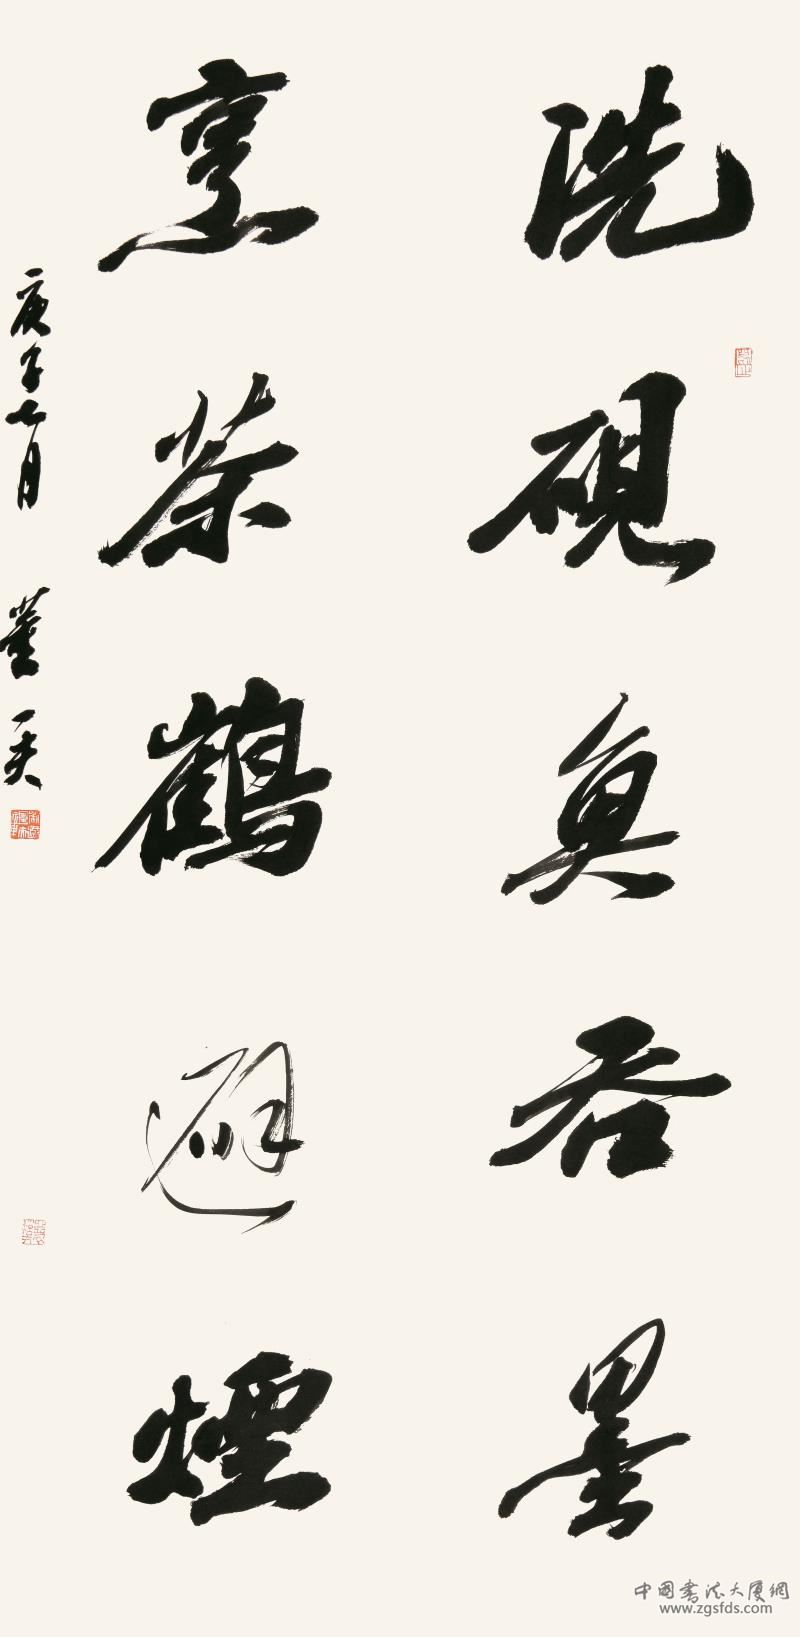 洗砚魚吞墨
烹茶鶴避煙
庚子七月 董一夫
中国書法大厦網
www.zgsfds.com